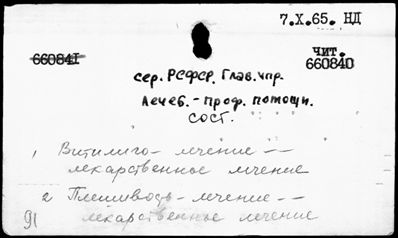 7.X.65. НД
660841
чит.
660840
сер. РСФСР. Глав. упр.
Лечеб.-проф. помощи.
сост.
1 Витилиго - лечение --
лекарственное лечение
2 Плешивость - лечение --
лекарственное лечение
91